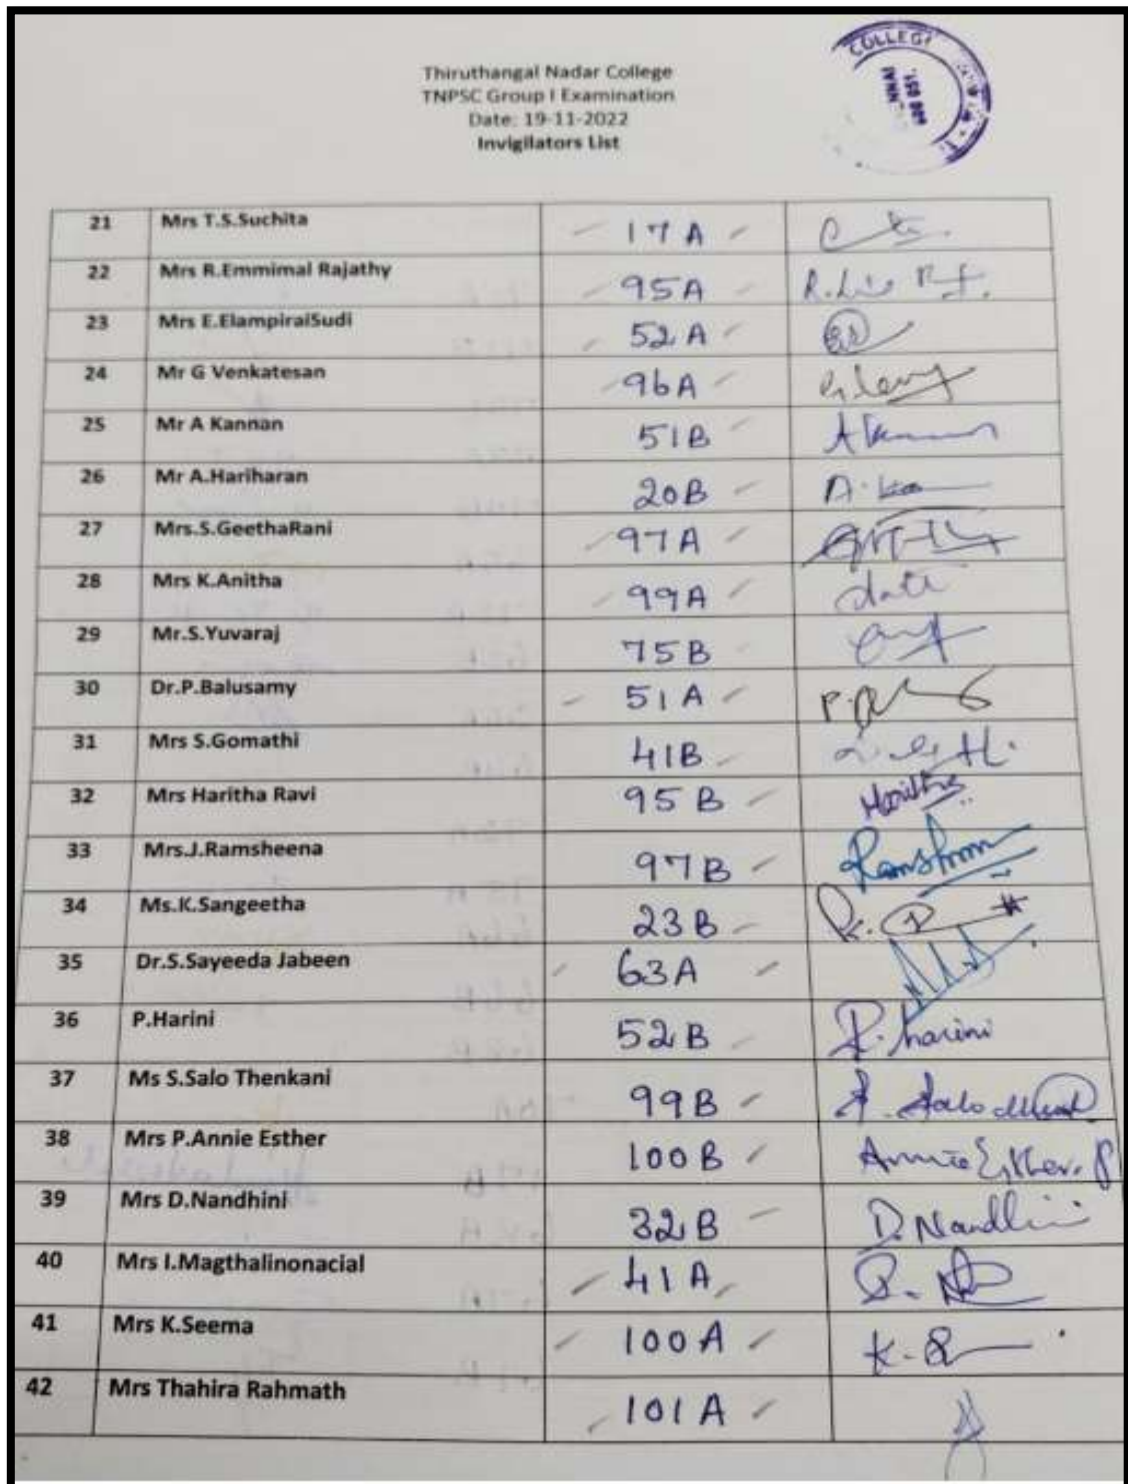 COLLEGE
Thiruthangal Nadar College
TNPSC Group I Examination
Date: 19-11-2022
Invigilators List
21 Mrs T.S.Suchita 17 A
22 Mrs R.Emmimal Rajathy 95A
23 Mrs E.ElampiraiSudi 52 A
24 Mr G Venkatesan 96A
25 Mr A Kannan 51B
26 Mr A.Hariharan 20B
27 Mrs.S.GeethaRani 97A
28 Mrs K.Anitha 99A
29 Mr.S.Yuvaraj 75B
30 Dr.P.Balusamy 51A
31 Mrs S.Gomathi 41B
32 Mrs Haritha Ravi 95 B Haritha
33 Mrs.J.Ramsheena 97B
34 Ms.K.Sangeetha 23B
35 Dr.S.Sayeeda Jabeen 63A
36 P.Harini 52B P. harini
37 Ms S.Salo Thenkani 99B
38 Mrs P.Annie Esther 100B Annie Esther. P
39 Mrs D.Nandhini 32B D. Nandhini
40 Mrs I.Magthalinonacial 41A
41 Mrs K.Seema 100A
42 Mrs Thahira Rahmath 101A